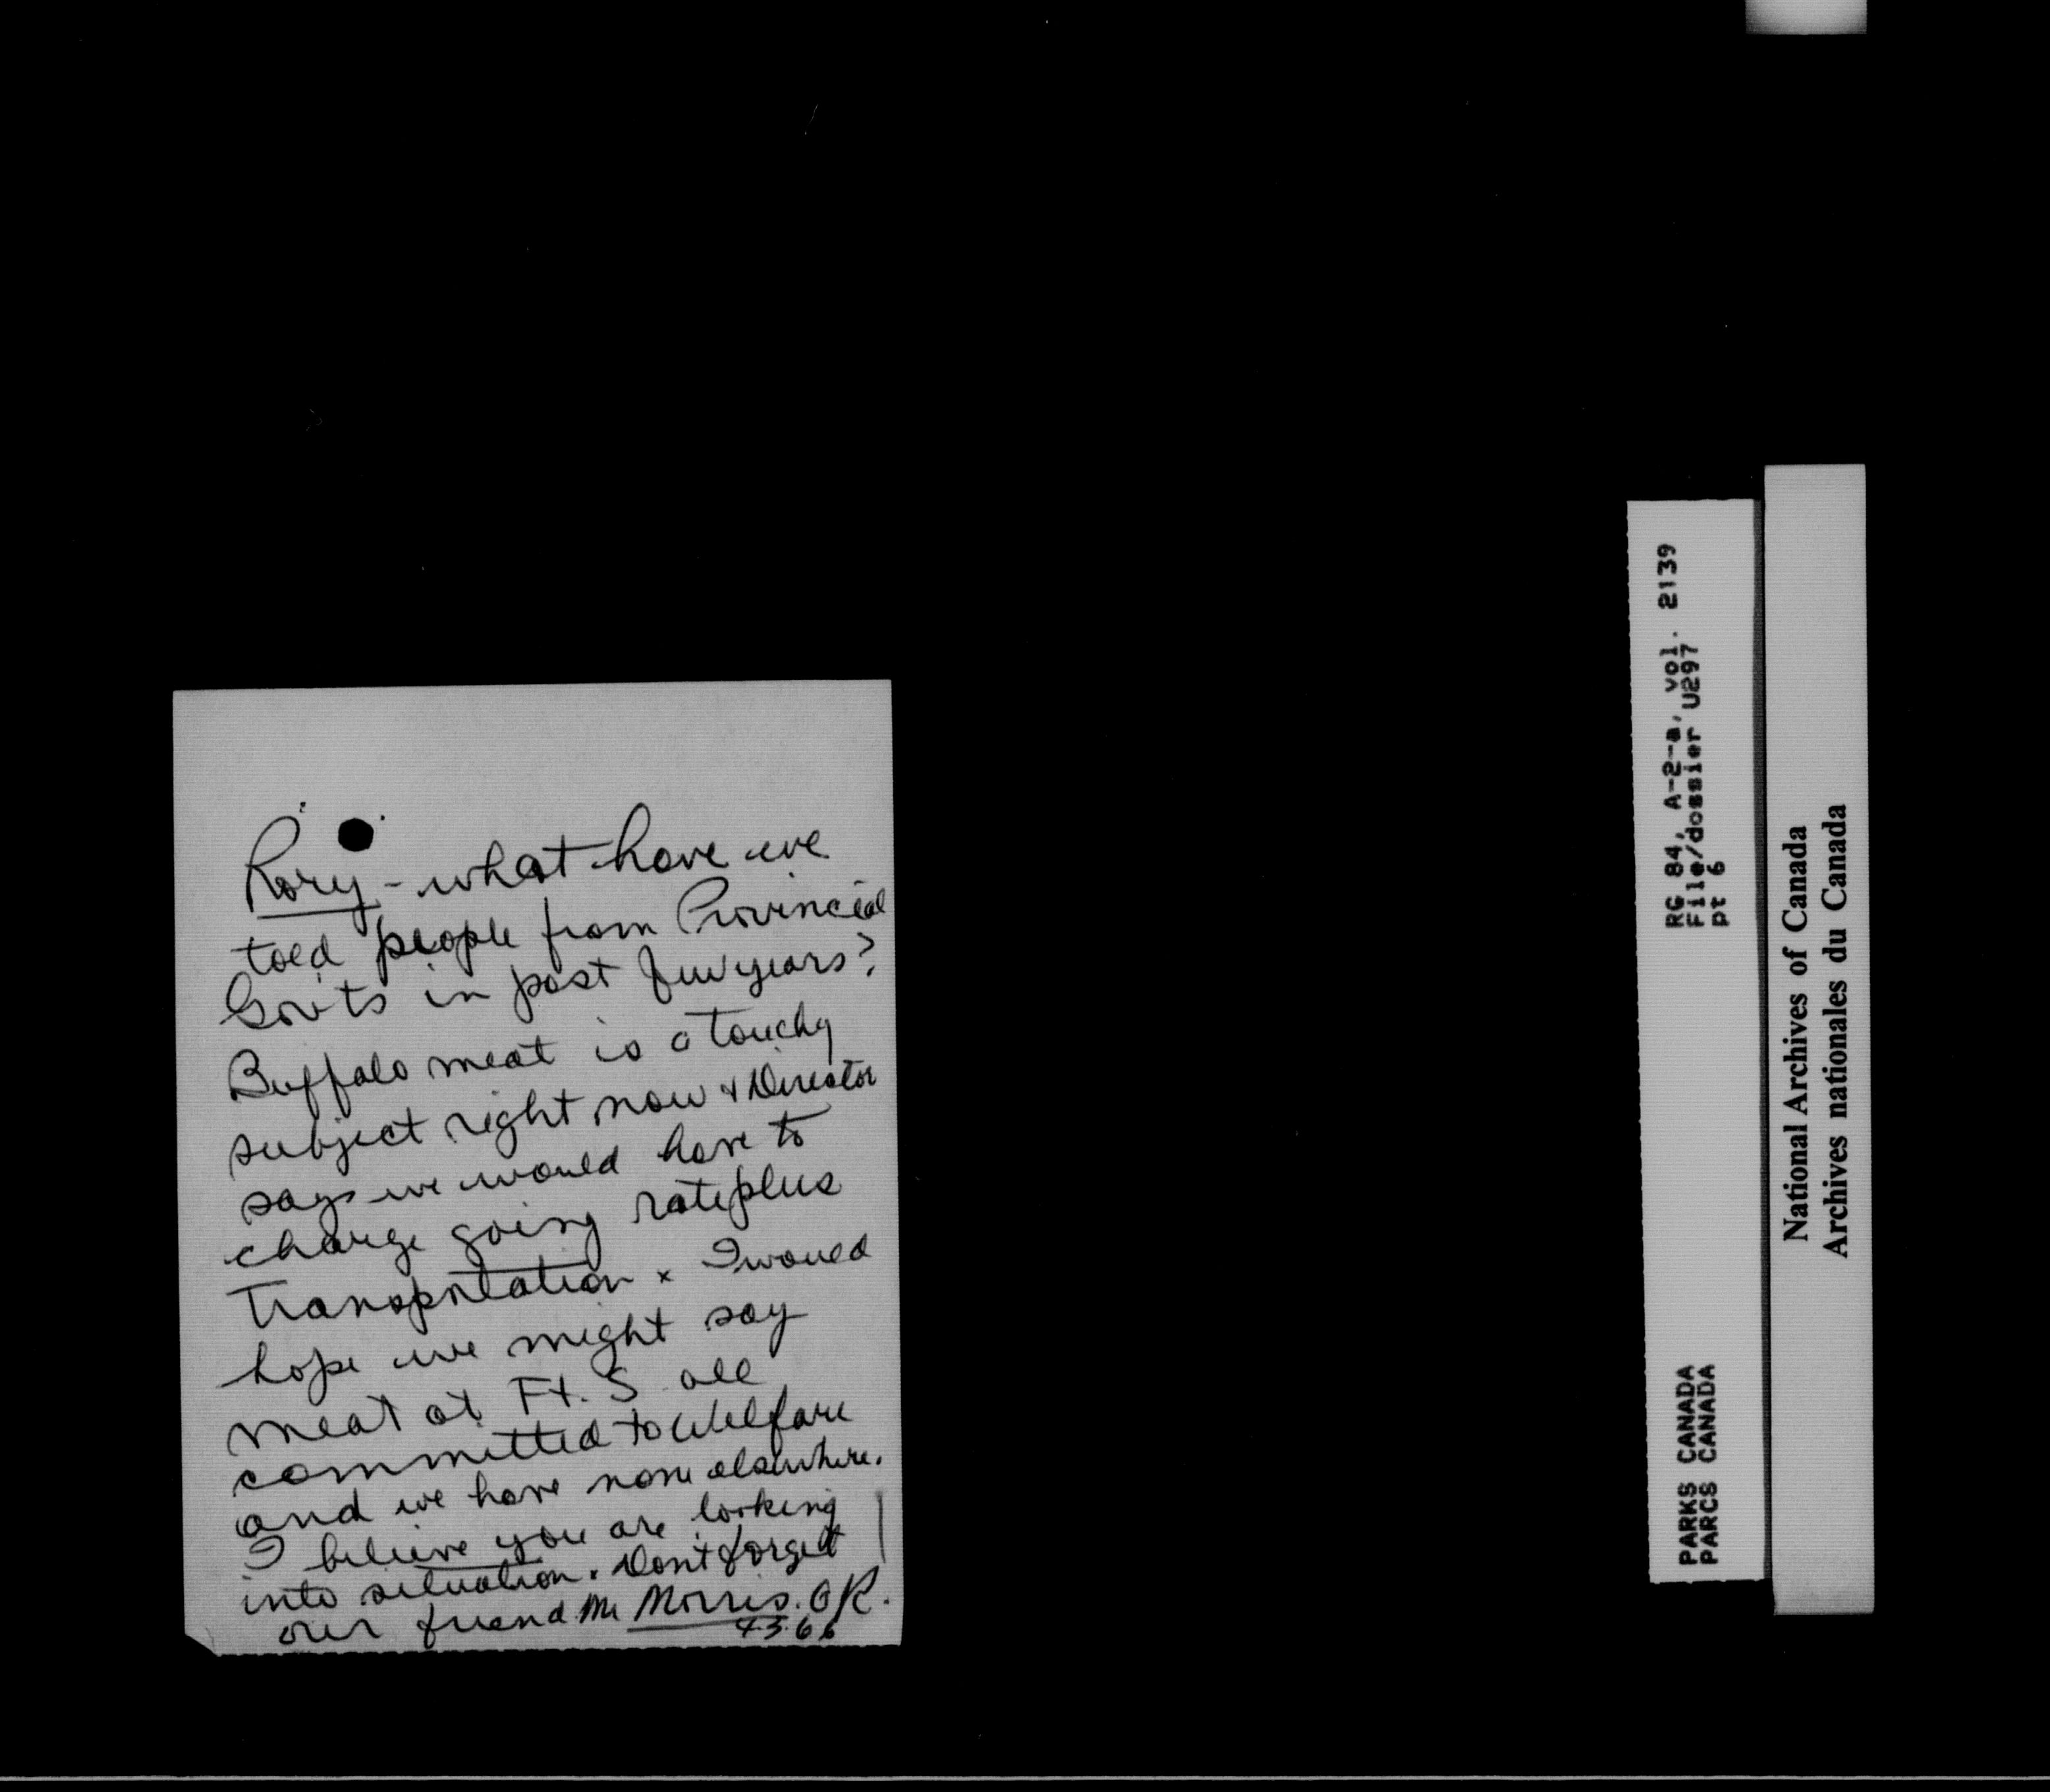 Rory - what have we
told people from Provincial
Gov'ts in past few years?
Buffalo meat is a touchy
subject right now & Director
says we would have to
charge going rate plus
transportation x I would
hope we might say
meat at Ft. S. all
committed to Welfare
and we have none elsewhere.
I believe you are looking
into situation. Don't forget
our friend Mr Morris. OK.
4.3.66
RG 84, A-2-a, vol. 2139
File/dossier U297
pt 6
PARKS CANADA
PARCS CANADA
National Archives of Canada
Archives nationales du Canada